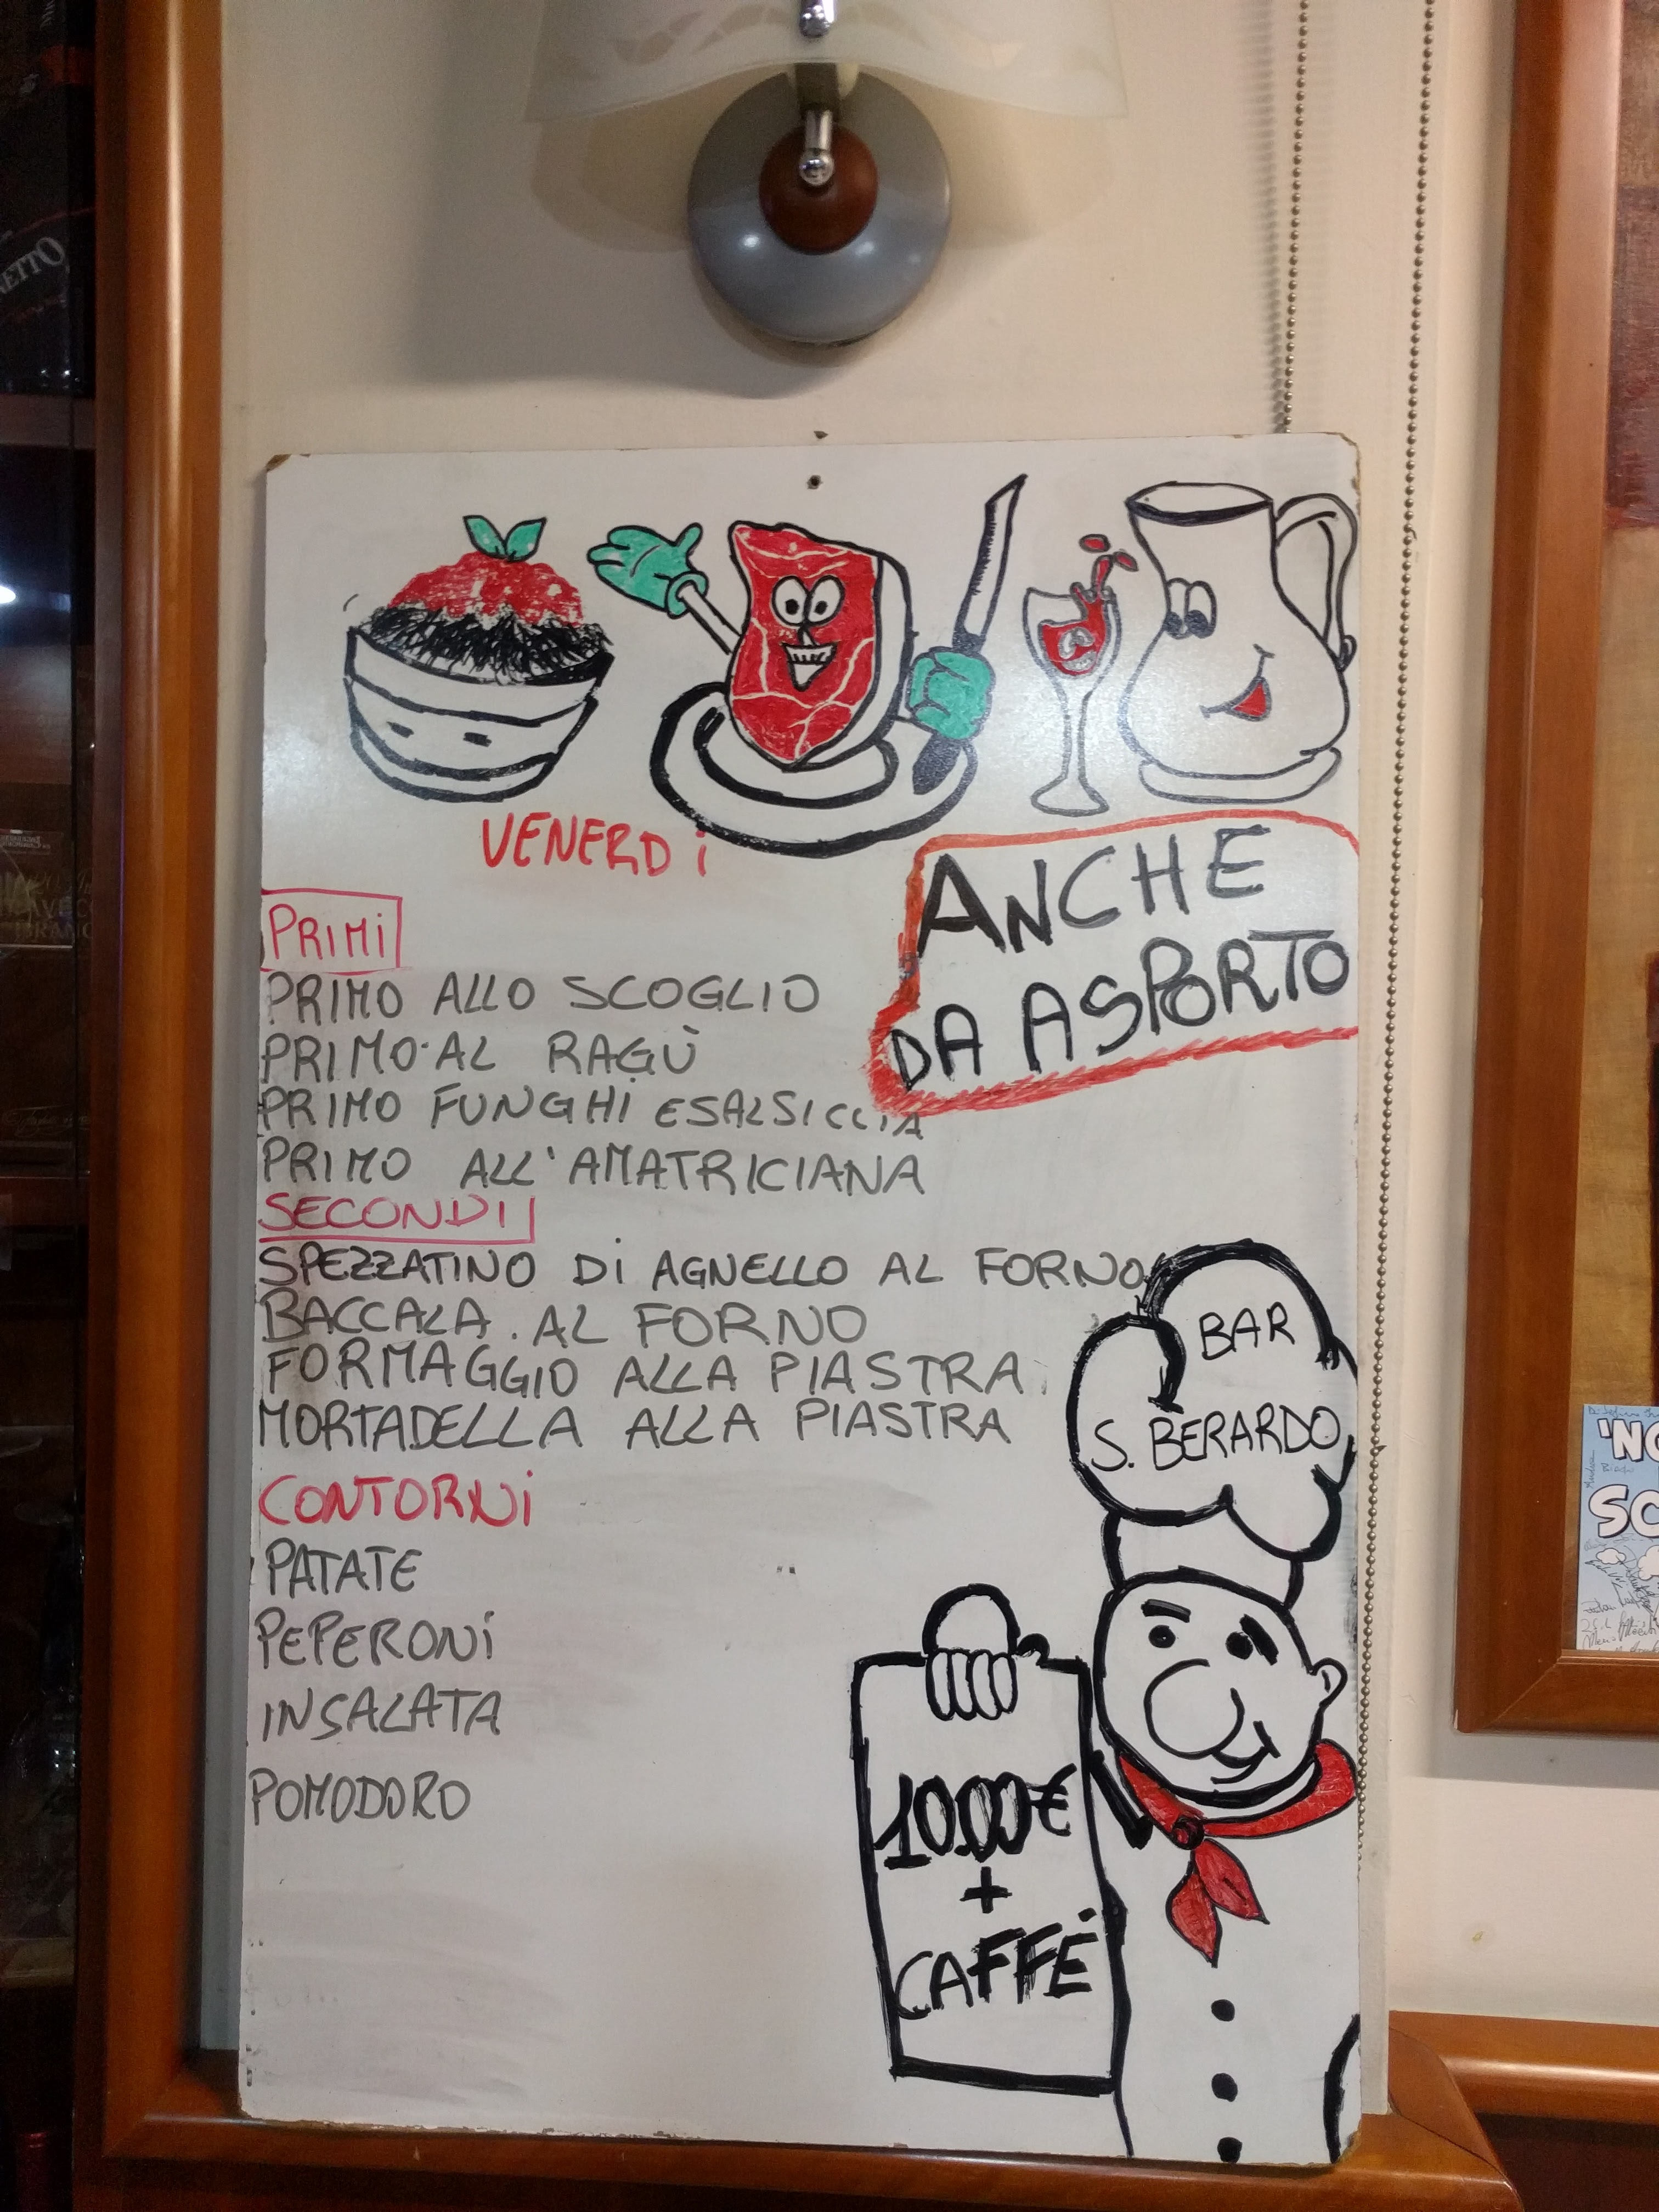 VENERDì
ANCHE
DA ASPORTO
PRIMI
PRIMO ALLO SCOGLIO
PRIMO AL RAGÙ
PRIMO FUNGHI E SALSICCIA
PRIMO ALL'AMATRICIANA
SECONDI
SPEZZATINO Di AGNELLO AL FORNO
BACCALA AL FORNO
FORMAGGIO ALLA PIASTRA
MORTADELLA ALLA PIASTRA
CONTORNi
PATATE
PEPERONi
INSALATA
POMODORO
BAR
S. BERARDO
10.00€
+
CAFFÈ